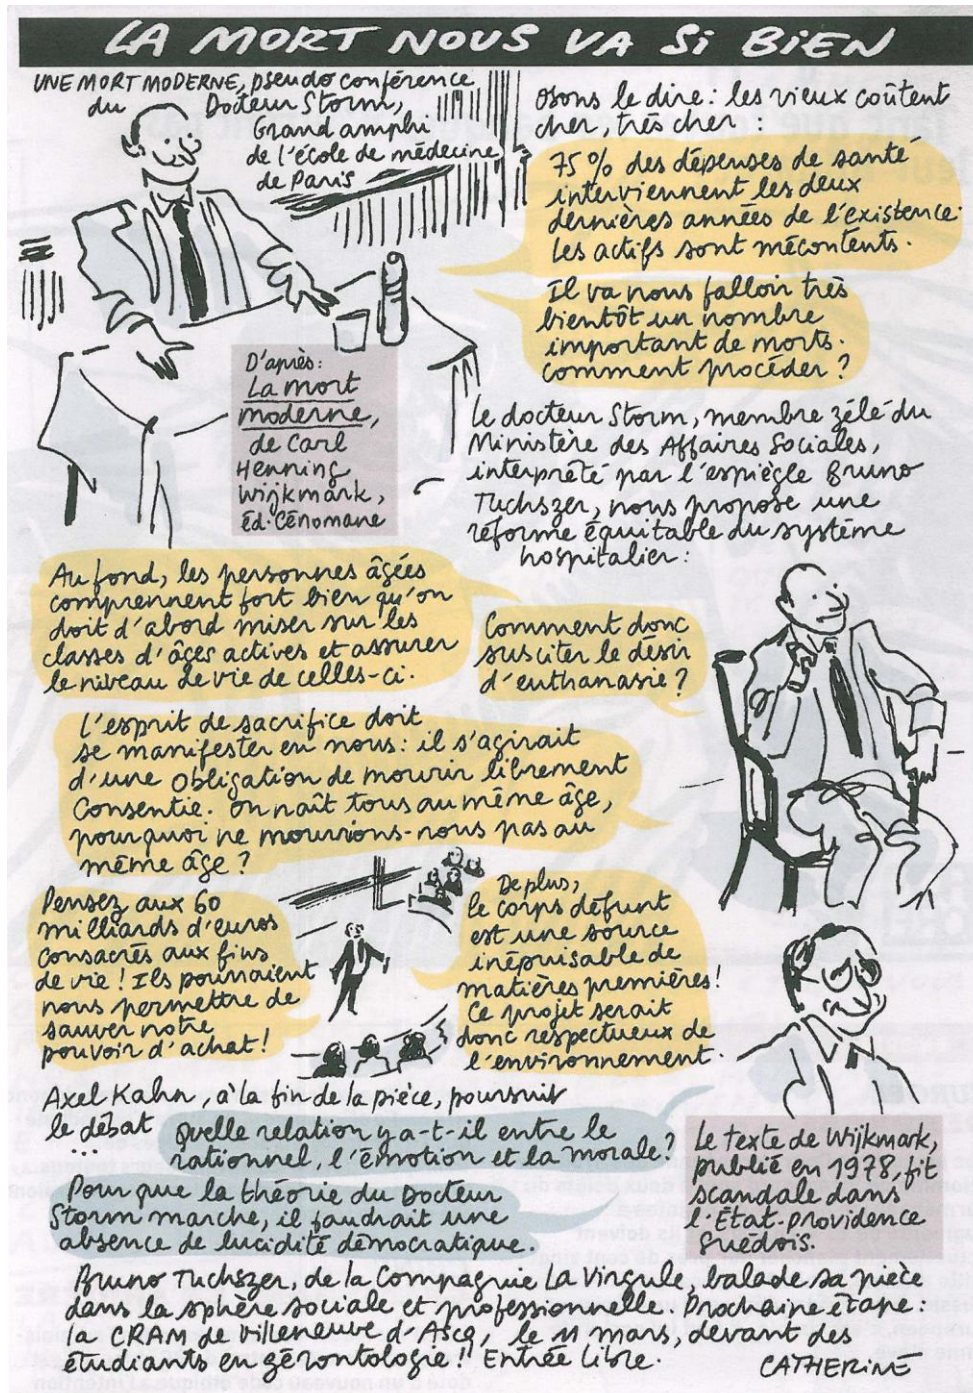 LA MORT NOUS VA Si BiEN
UNE MORT MODERNE, pseudo conférence
du Docteur Storm,
Grand amphi
de l'école de médecine
de Paris
Osons le dire : les vieux coûtent
cher, très cher :
75 % des dépenses de santé
interviennent les deux
dernières années de l'existence.
Les actifs sont mécontents.
Il va nous falloir très
bientôt un nombre
important de morts.
Comment procéder ?
D'après :
La mort
moderne,
de Carl
Henning
Wijkmark,
éd. Cénomane
Le docteur Storm, membre zélé du
Ministère des Affaires Sociales,
interprêté par l'espiègle Bruno
Tuchszer, nous propose une
réforme équitable du système
hospitalier :
Au fond, les personnes âgées
comprennent fort bien qu'on
doit d'abord miser sur les
classes d'âges actives et assurer
le niveau de vie de celles-ci.
Comment donc
susciter le désir
d'euthanasie ?
L'esprit de sacrifice doit
se manifester en nous : il s'agirait
d'une obligation de mourir librement
Consentie. On naît tous au même âge,
pourquoi ne mourrions-nous pas au
même âge ?
Pensez aux 60
milliards d'euros
consacrés aux fins
de vie ! Ils pourraient
nous permettre de
sauver notre
pouvoir d'achat !
De plus,
le corps défunt
est une source
inépuisable de
matières premières !
Ce projet serait
donc respectueux de
l'environnement.
Axel Kahn, à la fin de la pièce, poursuit
le débat
...
Quelle relation y a-t-il entre le
rationnel, l'émotion et la morale ?
Pour que la théorie du Docteur
Storm marche, il faudrait une
absence de lucidité démocratique.
Le texte de Wijkmark,
publié en 1978, fit
scandale dans
l'État-providence
suédois.
Bruno Tuchszer, de la Compagnie La Virgule, balade sa pièce
dans la sphère sociale et professionnelle. Prochaine étape :
la CRAM de Villeneuve d'Ascq, le 11 mars, devant des
étudiants en gérontologie ! Entrée libre.
CATHERINE